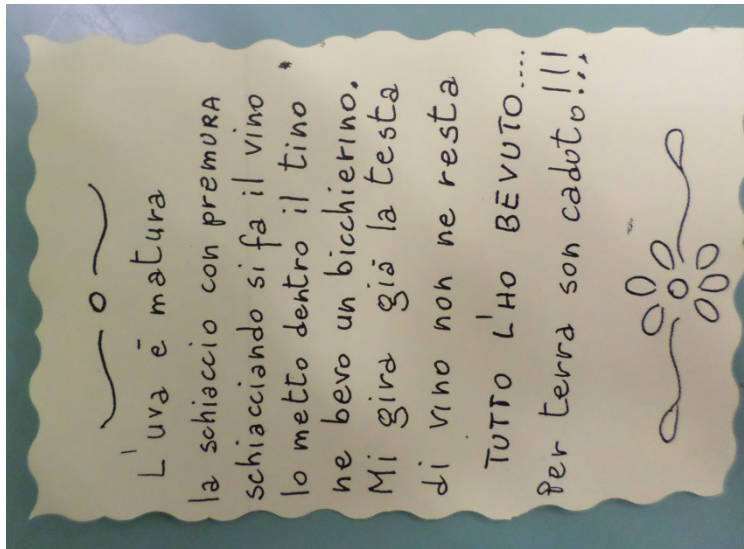 L'uva è matura
la schiaccio con PREMURA
schiacciando si fa il vino
lo metto dentro il tino
ne bevo un bicchierino.
Mi gira già la testa
di vino non ne resta
TUTTO L'HO BEVUTO....
Per terra son caduto!!!